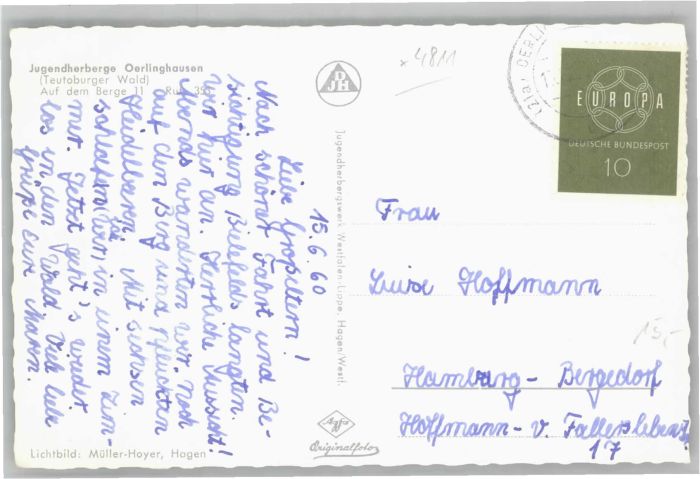 Jugendherberge Oerlinghausen
(Teutoburger Wald)
Auf dem Berge 11 Ruf 355
15.6.60
Liebe Großeltern!
Nach schöner Fahrt und Be-
sichtigung Bielefelds langten
wir hier an. Herrliche Aussicht!
Abends wanderten wir noch
auf den Berg und pflückten
Heidelbeeren. Mit sechsen
schlafen wir in einem Zim-
mer. Jetzt geht's wieder
los in den Wald. Viele liebe
Grüße eure
Lichtbild: Müller-Hoyer, Hagen
DJH
Jugendherbergswerk Westfalen-Lippe, Hagen/Westf.
Agfa
Originalfoto
4811
EUROPA
DEUTSCHE BUNDESPOST
10
Frau
Luise Hoffmann
15,-
Hamburg-Bergedorf
Hoffmann-v. Fallerslebenstr.
17